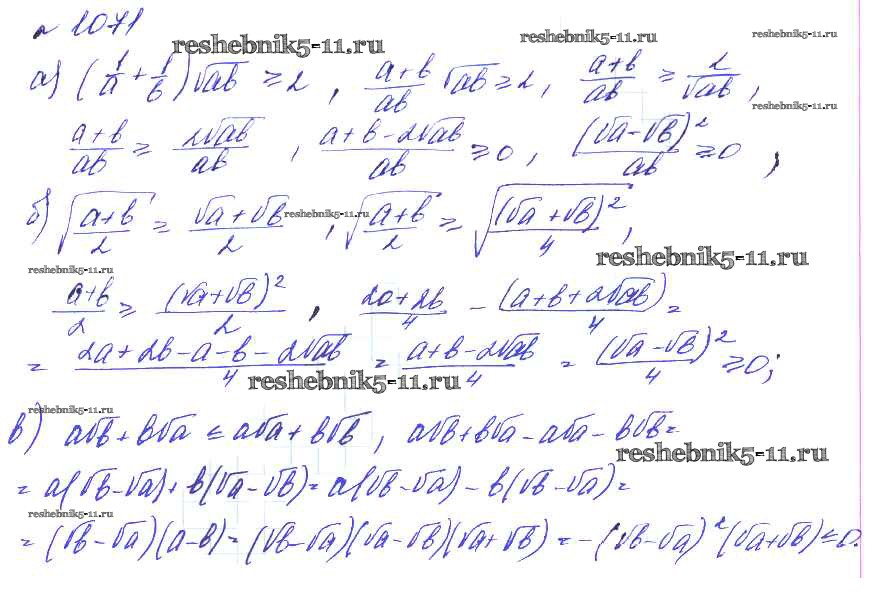 № 1071
reshebnik5-11.ru reshebnik5-11.ru reshebnik5-11.ru
а) (1/a + 1/b)√ab ≥ 2, (a+b)/ab √ab ≥ 2, (a+b)/ab ≥ 2/√ab,
reshebnik5-11.ru reshebnik5-11.ru
(a+b)/ab ≥ 2√ab/ab, (a+b-2√ab)/ab ≥ 0, (√a-√b)²/ab ≥ 0,
б) √((a+b)/2) ≥ (√a+√b)/2, √((a+b)/2) ≥ √((√a+√b)²/4),
reshebnik5-11.ru
reshebnik5-11.ru reshebnik5-11.ru
(a+b)/2 ≥ (√a+√b)²/2, (2a+2b)/4 - (a+b+2√ab)/4 =
= (2a+2b-a-b-2√ab)/4 = (a+b-2√ab)/4 = (√a-√b)²/4 ≥ 0;
reshebnik5-11.ru
reshebnik5-11.ru
в) a√b+b√a ≤ a√a+b√b, a√b+b√a-a√a-b√b=
reshebnik5-11.ru
= a(√b-√a)+b(√a-√b)= a(√b-√a)-b(√b-√a)=
reshebnik5-11.ru
= (√b-√a)(a-b)= (√b-√a)(√a-√b)(√a+√b)= -(√b-√a)²(√a+√b) ≤ 0.